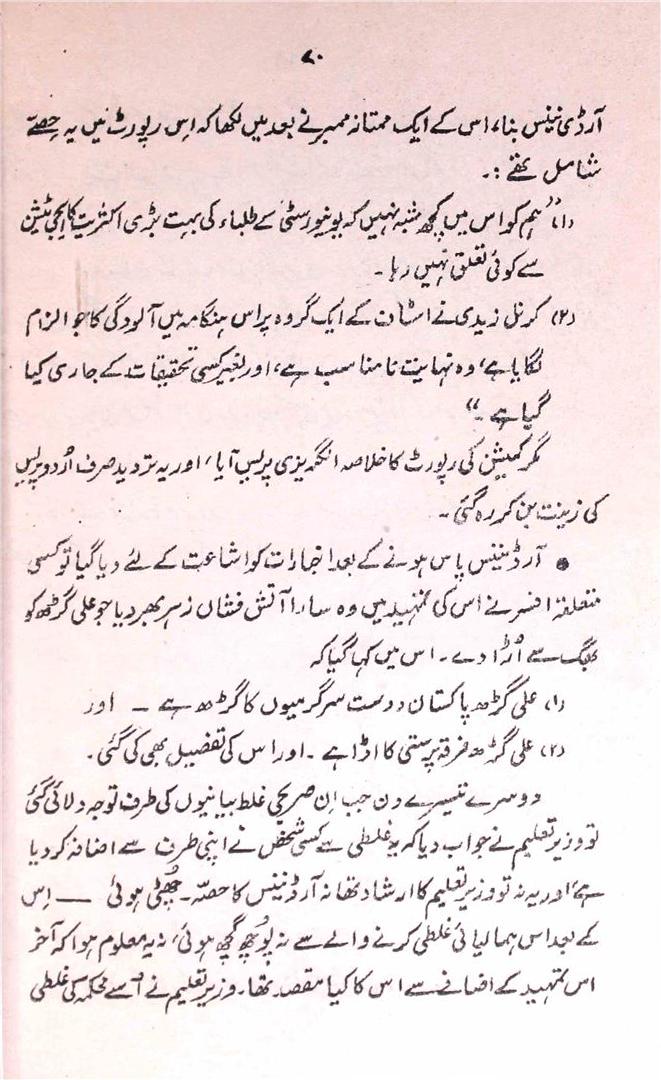 ۷۰
آرڈی نینس بنا، اس کے ایک ممتاز ممبر نے بعد میں لکھا کہ اِس رپورٹ میں یہ حِصّے
شامل تھے :۔
(۱) "ہم کو اس میں کچھ شبہ نہیں کہ یونیورسٹی کے طلباء کی بہت بڑی اکثریت کا ایجی ٹیشن
سے کوئی تعلق نہیں رہا۔
(۲) کرنل زیدی نے اسٹاف کے ایک گروہ پر اس ہنگامہ میں آلودگی کا جو الزام
لگایا ہے، وہ نہایت نامناسب ہے، اور بغیر کسی تحقیقات کے جاری کیا
گیا ہے۔"
مگر کمیشن کی رپورٹ کا خلاصہ انگریزی پریس آیا، اور یہ تردید صرف اُردو پریس
کی زینت بن کر رہ گئی۔
● آرڈیننس پاس ہونے کے بعد اخبارات کو اشاعت کے لئے دیا گیا تو کسی
متعلقہ افسر نے اس کی تمہید میں وہ سارا آتش فشاں زہر بھر دیا جو علی گڑھ کو
بھک سے اُڑا دے۔ اس میں کہا گیا کہ
(۱) علی گڑھ پاکستان دوست سرگرمیوں کا گڑھ ہے — اور
(۲) علی گڑھ فرقہ پرستی کا اڈا ہے۔ اور اس کی تفصیل بھی کی گئی۔
دوسرے تیسرے دن جب اِن صریحی غلط بیانیوں کی طرف توجہ دلائی گئی
تو وزیر تعلیم نے جواب دیا کہ یہ غلطی سے کسی شخص نے اپنی طرف سے اضافہ کر دیا
ہے، اور یہ نہ تو وزیر تعلیم کا ارشاد تھا نہ آرڈیننس کا حصّہ۔ چھُٹی ہوئی — اِس
کے بعد اس ہمالیائی غلطی کرنے والے سے نہ پُوچھ گچھ ہوئی، نہ یہ معلوم ہوا کہ آخر
اس تمہید کے اضافے سے اس کا کیا مقصد تھا۔ وزیر تعلیم نے اُسے محکمہ کی غلطی